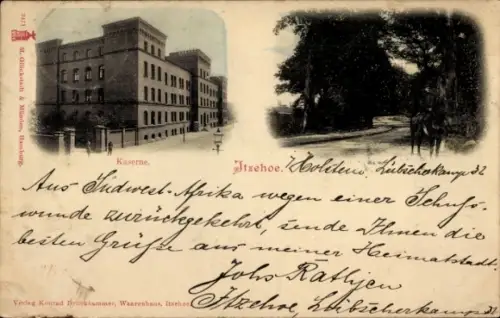 2471
M. Glückstadt & Münden, Hamburg.
Kaserne.
Itzehoe.
i/Holstein, Liebscherkamp 32
Aus Südwest-Afrika wegen einer Schuss-
wunde zurückgekehrt, sende Ihnen die
besten Grüße aus meiner Heimatstadt.
Johs Rathjen
Itzehoe, Liebscherkamp 32
Verlag Konrad Brinkhammer, Waarenhaus, Itzehoe